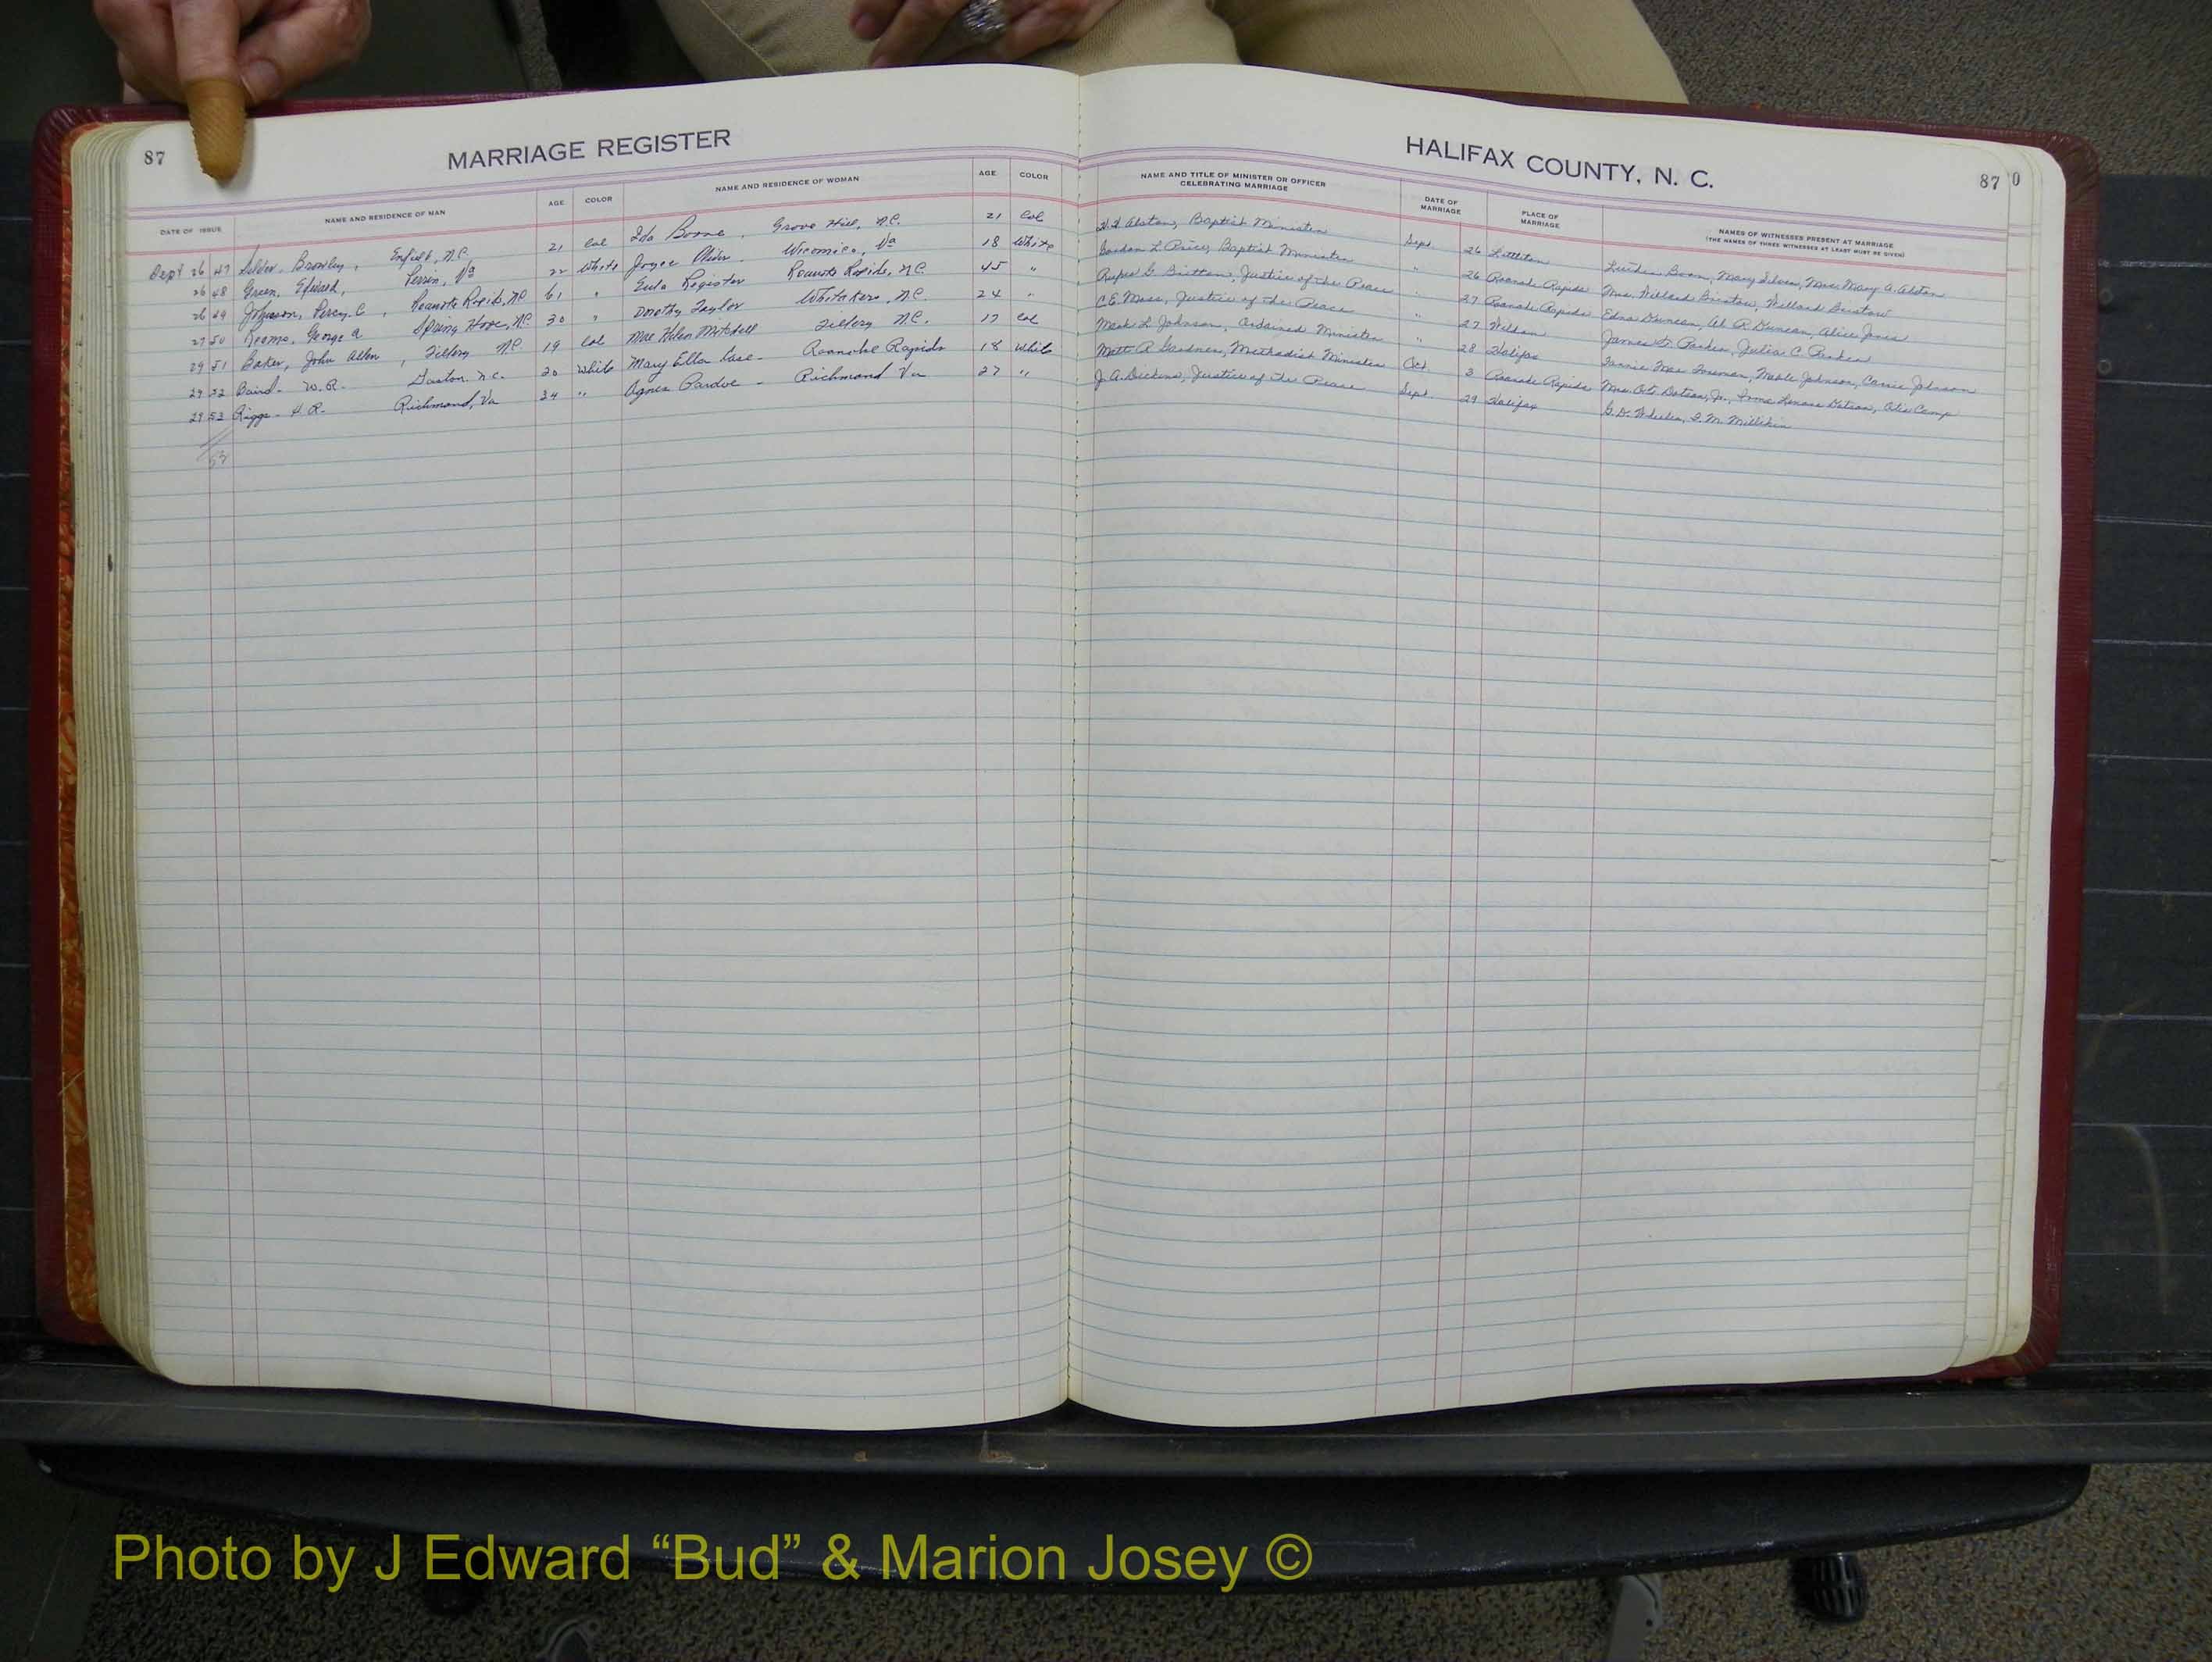 87
MARRIAGE REGISTER
DATE OF ISSUE NAME AND RESIDENCE OF MAN AGE COLOR NAME AND RESIDENCE OF WOMAN AGE COLOR
Sept 26 47 Brawley, Enfield, N.C. 21 Col Ida Boone, Grove Hill, N.C. 21 Col
26 48 Green, Edward, Perrin, Va 22 White Joyce Wicomico, Va 18 White
26 49 Johnson, Percy C, Roanoke Rapids, N.C. 61 " Eula Register Roanoke Rapids, N.C. 45 "
27 50 George A Spring Hope, N.C. 30 " Dorothy Taylor Whitakers, N.C. 24 "
29 51 Baker, John Allen, Tillery N.C. 19 Col Mae Helen Mitchell Tillery N.C. 17 Col
29 52 Baird - W. R. - Gaston, N.C. 20 White Mary Ella - Roanoke Rapids 18 White
29 53 Riggs - H. R. Richmond, Va 34 " Agnes Pardue - Richmond Va 27 "
53
HALIFAX COUNTY, N. C.
87
0
NAME AND TITLE OF MINISTER OR OFFICER CELEBRATING MARRIAGE DATE OF MARRIAGE PLACE OF MARRIAGE NAMES OF WITNESSES PRESENT AT MARRIAGE
(THE NAMES OF THREE WITNESSES AT LEAST MUST BE GIVEN)
Alston, Baptist Minister Sept. 26 Littleton Luther Boon, Mary Silver, Miss Mary A. Alston
Gordon L. Price, Baptist Minister " 26 Roanoke Rapids Mrs. Willard Bristow, Willard Bristow
Rufus G. Britton, Justice of the Peace " 27 Roanoke Rapids Edna Duncan, Al R. Duncan, Alice Jones
C.E. Moss, Justice of the Peace " 27 Weldon James Parker, Julia C. Parker
Mack L. Johnson, Ordained Minister " 28 Halifax Fannie Mae Foreman, Mable Johnson, Carrie Johnson
Matt R. Gardner, Methodist Minister Oct. 3 Roanoke Rapids Mrs. Otis Dotson, Jr., Irma Lenore Dotson, Otis Camp
J. A. Dickens, Justice of the Peace Sept. 29 Halifax G. D. Wheeler, F. M. Millikin
Photo by J Edward “Bud” & Marion Josey ©